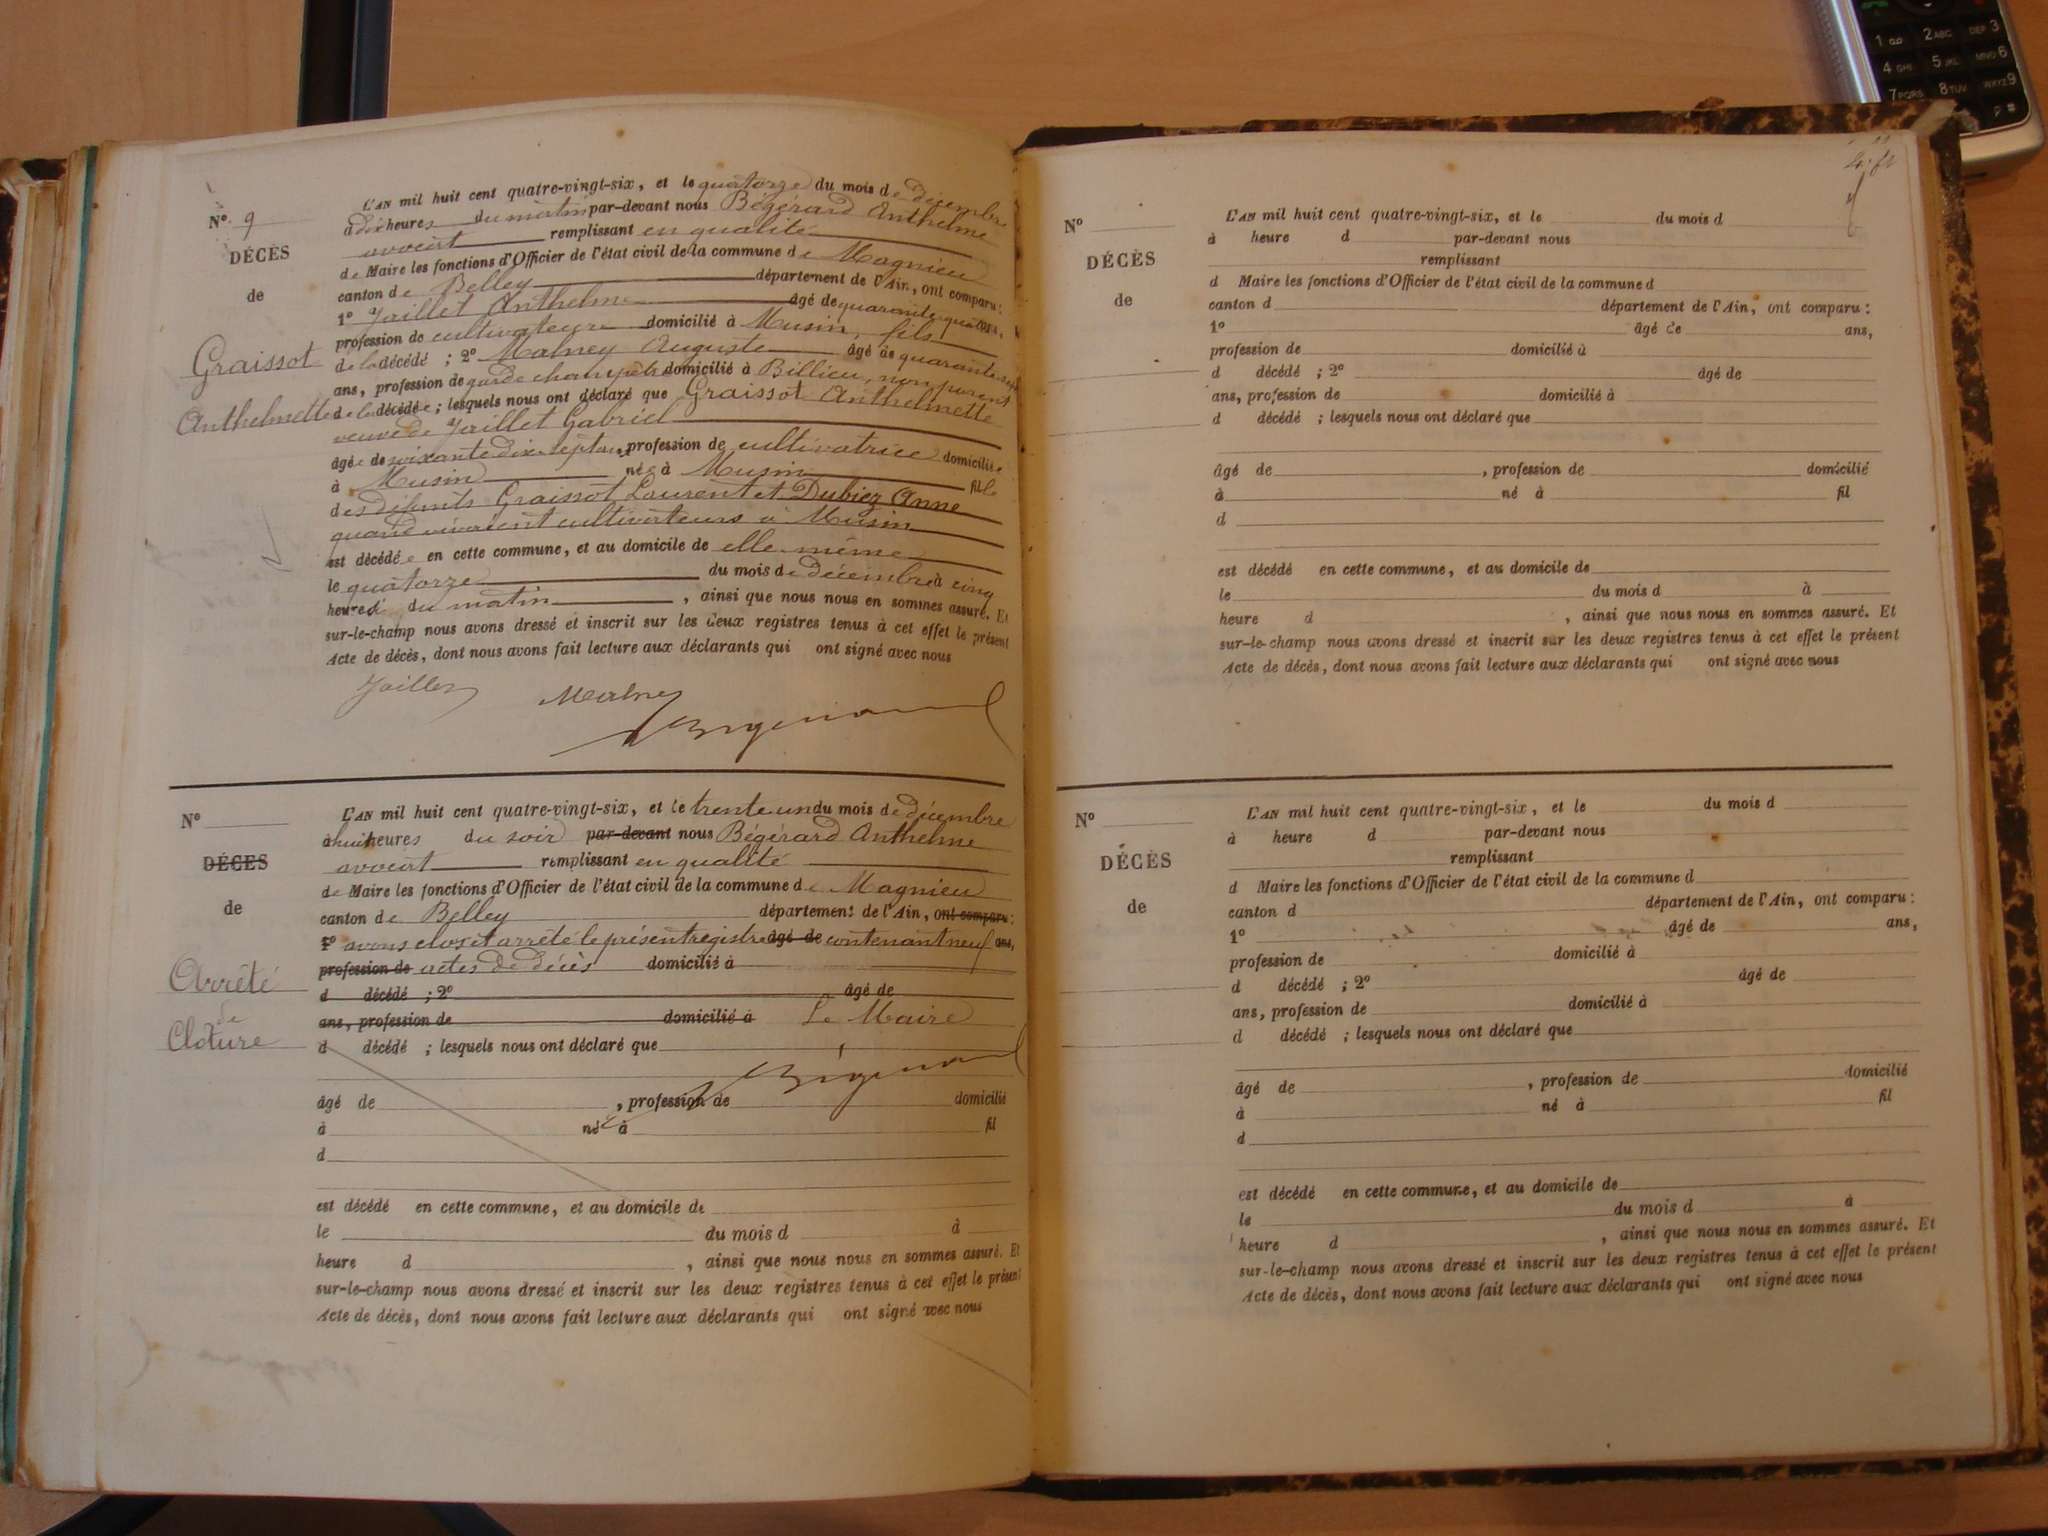 N° 9
DÉCÈS
de
Graissot
Anthelmette
L'AN mil huit cent quatre-vingt-six, et le quatorze du mois de décembre
à dix heures du matin par-devant nous Bégérard Anthelme
avocat remplissant en qualité
de Maire les fonctions d'Officier de l'état civil de la commune de Magnieu
canton de Belley département de l'Ain, ont comparu :
1° Jaillet Anthelme âgé de quarante quatre ans,
profession de cultivateur domicilié à Musin, fils
de la décédé ; 2° Malney Auguste âgé de quarante sept
ans, profession de garde champêtre domicilié à Billieu, non parent
de la décédée ; lesquels nous ont déclaré que Graissot Anthelmette
veuve de Jaillet Gabriel
âgée de soixante dix sept ans, profession de cultivatrice domiciliée
à Musin née à Musin fille
des défunts Graissot Laurent et Dubiez Anne
quand vivaient cultivateurs à Musin
est décédée en cette commune, et au domicile de elle-même
le quatorze du mois de décembre à cinq
heures du matin, ainsi que nous nous en sommes assuré. Et
sur-le-champ nous avons dressé et inscrit sur les deux registres tenus à cet effet le présent
Acte de décès, dont nous avons fait lecture aux déclarants qui ont signé avec nous
Jaillet Malney
N°
DÉCÈS
de
Arrêté
de
Clôture
L'AN mil huit cent quatre-vingt-six, et le trente un du mois de décembre
à huit heures du soir par-devant nous Bégérard Anthelme
avocat remplissant en qualité
de Maire les fonctions d'Officier de l'état civil de la commune de Magnieu
canton de Belley département de l'Ain, ont comparu :
1° avons clos et arrêté le présent registre âgé de contenant neuf ans,
profession de actes de décès domicilié à
d décédé ; 2° âgé de
ans, profession de domicilié à Le Maire
d décédé ; lesquels nous ont déclaré que
âgé de , profession de domicilié
à né à fil
d
est décédé en cette commune, et au domicile de
le du mois d à
heure d , ainsi que nous nous en sommes assuré. Et
sur-le-champ nous avons dressé et inscrit sur les deux registres tenus à cet effet le présent
Acte de décès, dont nous avons fait lecture aux déclarants qui ont signé avec nous
N°
DÉCÈS
de
L'AN mil huit cent quatre-vingt-six, et le du mois d
à heure d par-devant nous
remplissant
d Maire les fonctions d'Officier de l'état civil de la commune d
canton d département de l'Ain, ont comparu :
1° âgé de ans,
profession de domicilié à
d décédé ; 2° âgé de
ans, profession de domicilié à
d décédé ; lesquels nous ont déclaré que
âgé de , profession de domicilié
à né à fil
d
est décédé en cette commune, et au domicile de
le du mois d à
heure d , ainsi que nous nous en sommes assuré. Et
sur-le-champ nous avons dressé et inscrit sur les deux registres tenus à cet effet le présent
Acte de décès, dont nous avons fait lecture aux déclarants qui ont signé avec nous
N°
DÉCÈS
de
L'AN mil huit cent quatre-vingt-six, et le du mois d
à heure d par-devant nous
remplissant
d Maire les fonctions d'Officier de l'état civil de la commune d
canton d département de l'Ain, ont comparu :
1° âgé de ans,
profession de domicilié à
d décédé ; 2° âgé de
ans, profession de domicilié à
d décédé ; lesquels nous ont déclaré que
âgé de , profession de domicilié
à né à fil
d
est décédé en cette commune, et au domicile de
le du mois d à
heure d , ainsi que nous nous en sommes assuré. Et
sur-le-champ nous avons dressé et inscrit sur les deux registres tenus à cet effet le présent
Acte de décès, dont nous avons fait lecture aux déclarants qui ont signé avec nous
1 2 ABC DEF 3
4 GHI 5 JKL MNO 6
7 PQRS 8 TUV WXYZ 9
P #